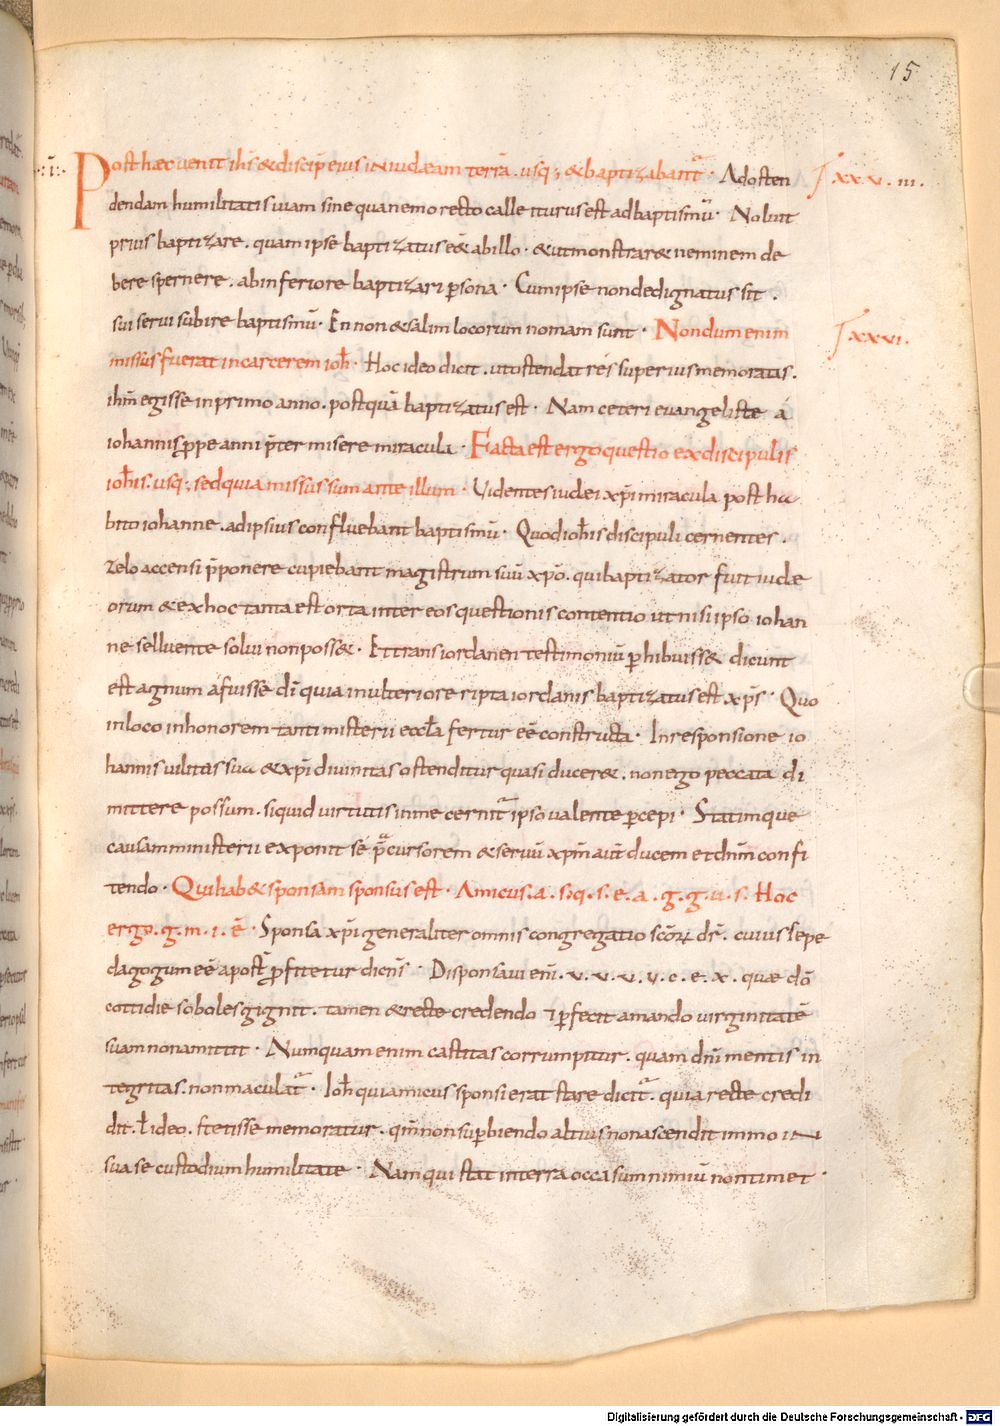 15
·:i:· Post haec uenit ihs̄ & discip̄ eius in iudaeam terrā. usq; & baptizabant᷑ · Ad osten xxv. iii.
dendam humilitatis uiam sine qua nemo recto calle iturus est ad baptismū · Noluit
prius baptizare. quam ipse baptizatus eēt ab illo · & ut monstrar& neminem de
bere spernere. ab inferiore baptizari ꝑsona · Cum ipse non dedignatus sit.
sui serui subire baptismū · En non & salim locorum nomam sunt · Nondum enim xxvi.
missus fuerat in carcerem ioh̄ · Hoc ideo dicit. ut ostendat res superius memoratas.
ihm̄ egisse in primo anno. postquā baptizatus est · Nam ceteri euangelistae a
iohannis ꝓpe anni p̄ter misere miracula · Facta est ergo questio ex discipulis
ioh̄is. usq; sed quia missus sum ante illum · Uidentes iudei xp̄i miracula post ha
bito iohanne. ad ipsius confluebant baptismū · Quod ioh̄is discipuli cernentes.
zelo accensi p̄ponere cupiebant magistrum suū xp̄o. qui baptizator fuit iudae
orum & ex hoc tanta est orta inter eos questionis contentio ut nisi ipso iohan
neselluente solui non poss& · Et trans iordanen testimoniū ꝑhibuiss& dicunt
est agnum afuisse dī quia in ulteriore ripta iordanis baptizatus est xp̄s · Quo
in loco in honorem tanti misterii eccl̄a fertur eē constructa · In responsione io
hannis uilitas sua & xp̄i diuinitas ostenditur quasi ducer&. non ego peccata di
mittere possum. siquid uirtutis in me cernit᷑ ipso ualente ꝑcepi · Statimque
causam ministerii exponit se p̄cursorem & seruū xp̄m aut̄ ducem et dn̄m confi
tendo · Qui hab& sponsam sponsus est · Amicus. a. s. q. s. e. a. g. g. u. s. Hoc
ergo. g. m. i. ē · Sponsa xp̄i generaliter omnis congregatio scōꝝ dr̄. cuius se pe
dagogum eē apost̄ ꝓfitetur dicn̄s · Disponsaui en̄i. v. v. v. v. c. e. x. quae dō
cottidie soboles gignit. tamen & recte credendo ⁊ ꝑfecit amando uirginitatē
suam non amittit · Numquam enim castitas corrumpitur. quam dn̄i mentis in
tegritas. non maculat᷑ · Ioh̄ qui amicus sponsi erat stare dicit᷑. quia recte credi
dit. ł ideo. stetisse memoratur. qm̄ non suꝑbiendo altius non ascendit immo i
sua se custodium humilitate · Nam qui stat in terra occasum nimiū non timet ·
Digitalisierung gefördert durch die Deutsche Forschungsgemeinschaft - DFG